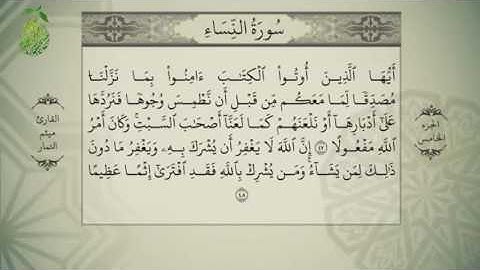 سُورَةُ النِّسَاءِ
أَيُّهَا الَّذِينَ أُوتُوا۟ الْكِتَـٰبَ ءَامِنُوا۟ بِمَا نَزَّلْنَا
مُصَدِّقًا لِمَا مَعَكُم مِن قَبْلِ أَن نَّطْمِسَ وُجُوهًا فَنَرُدَّهَا
عَلَىٰ أَدْبَارِهَا أَوْ نَلْعَنَهُمْ كَمَا لَعَنَّا أَصْحَـٰبَ السَّبْتِ وَكَانَ أَمْرُ
اللَّهِ مَفْعُولًا ٤٧ إِنَّ اللَّهَ لَا يَغْفِرُ أَن يُشْرَكَ بِهِۦ وَيَغْفِرُ مَا دُونَ
ذَٰلِكَ لِمَن يَشَاءُ وَمَن يُشْرِكْ بِاللَّهِ فَقَدِ افْتَرَىٰ إِثْمًا عَظِيمًا
٤٨
الجزء
الخامس
القارئ
ميثم
التمار